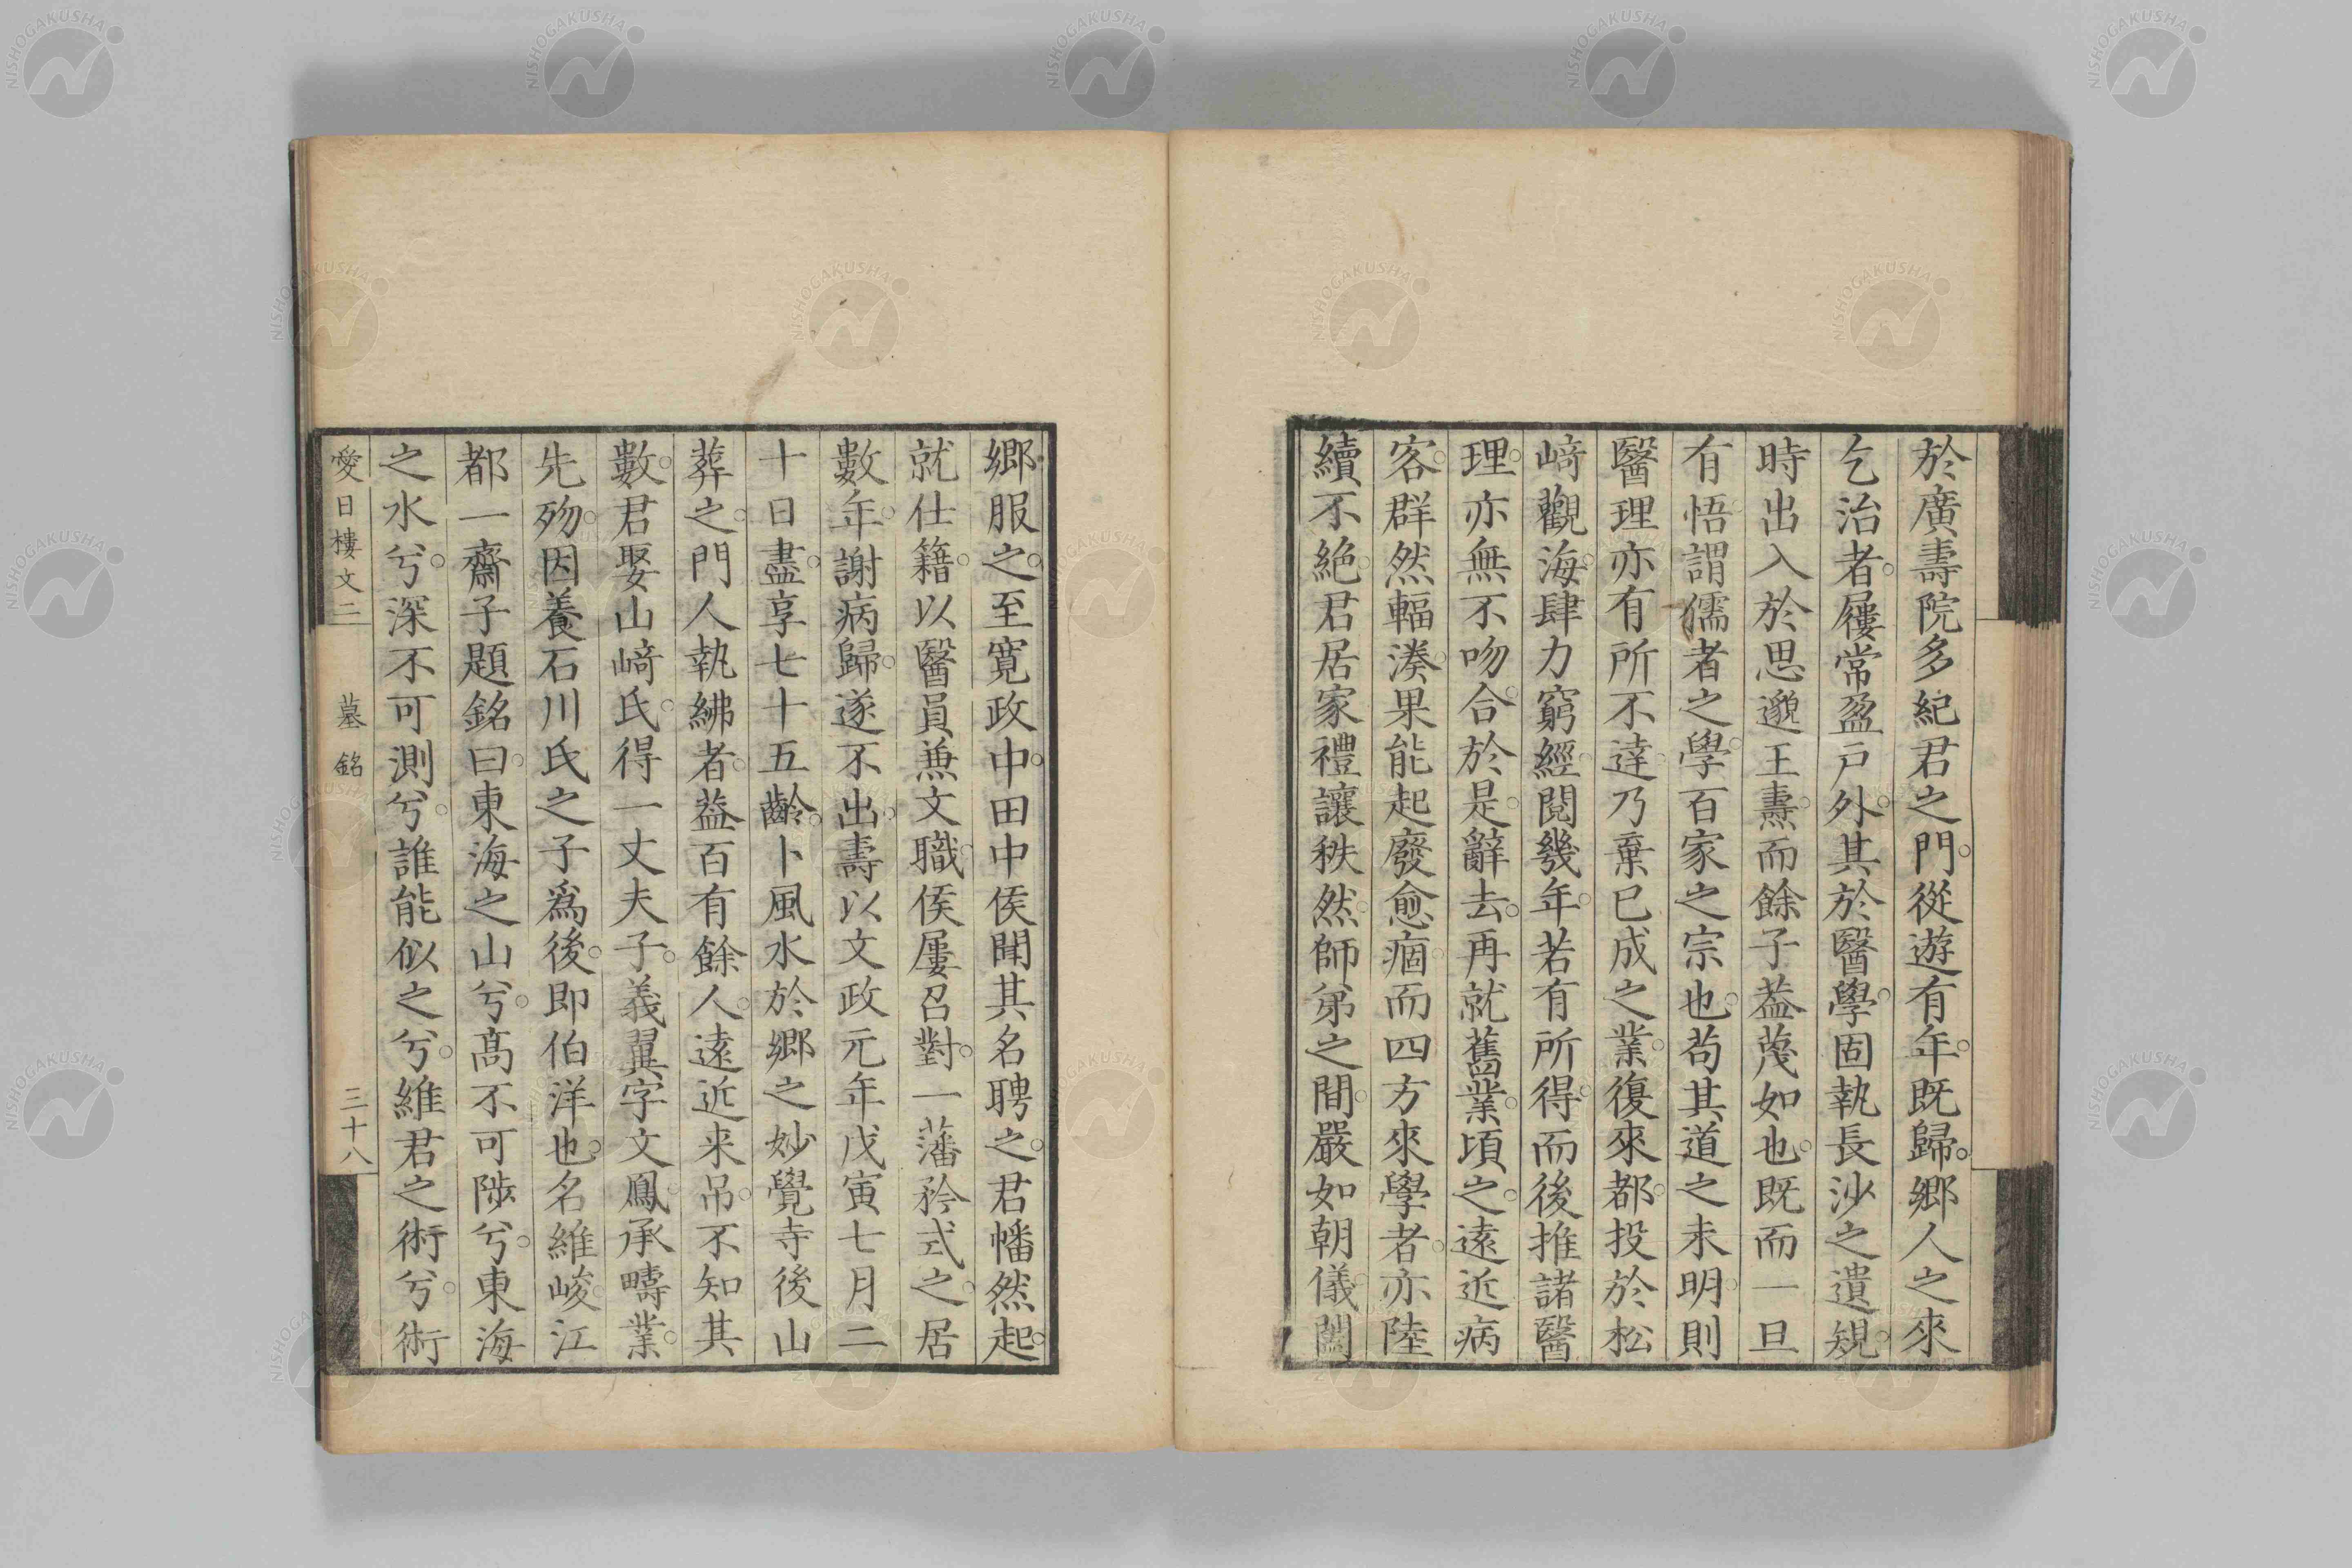 於廣壽院多紀君之門。從遊有年。既歸。鄉人之來
乞治者。屨常盈戶外。其於醫學。固執長沙之遺規。
時出入於思邈王燾。而餘子蓋蔑如也。既而一旦
有悟。謂儒者之學。百家之宗也。苟其道之未明。則
醫理亦有所不達。乃棄已成之業。復來都。投於松
﨑觀海。肆力窮經。閱幾年。若有所得。而後推諸醫
理。亦無不吻合。於是。辭去。再就舊業。頃之。遠近病
客。群然輻湊。果能起廢愈痼。而四方來學者。亦陸
續不絶。君居家禮讓秩然。師弟之間。嚴如朝儀。闔
鄉服之。至寬政中。田中侯聞其名聘之。君幡然起。
就仕籍。以醫員兼文職。侯屢召對。一藩矜式之。居
數年。謝病歸。遂不出。壽以文政元年戊寅七月二
十日盡。享七十五齡。卜風水於鄉之妙覺寺後山
葬之。門人執紼者。益百有餘人。遠近来吊。不知其
數。君娶山﨑氏。得一丈夫子。義翼字文鳳。承疇業。
先歿。因養石川氏之子爲後。即伯洋也。名維峻。江
都一齋子題銘曰。東海之山兮。高不可陟兮。東海
之水兮。深不可測兮。誰能似之兮。維君之術兮。術
愛日樓文二 墓銘 三十八
NISHOGAKUSHA